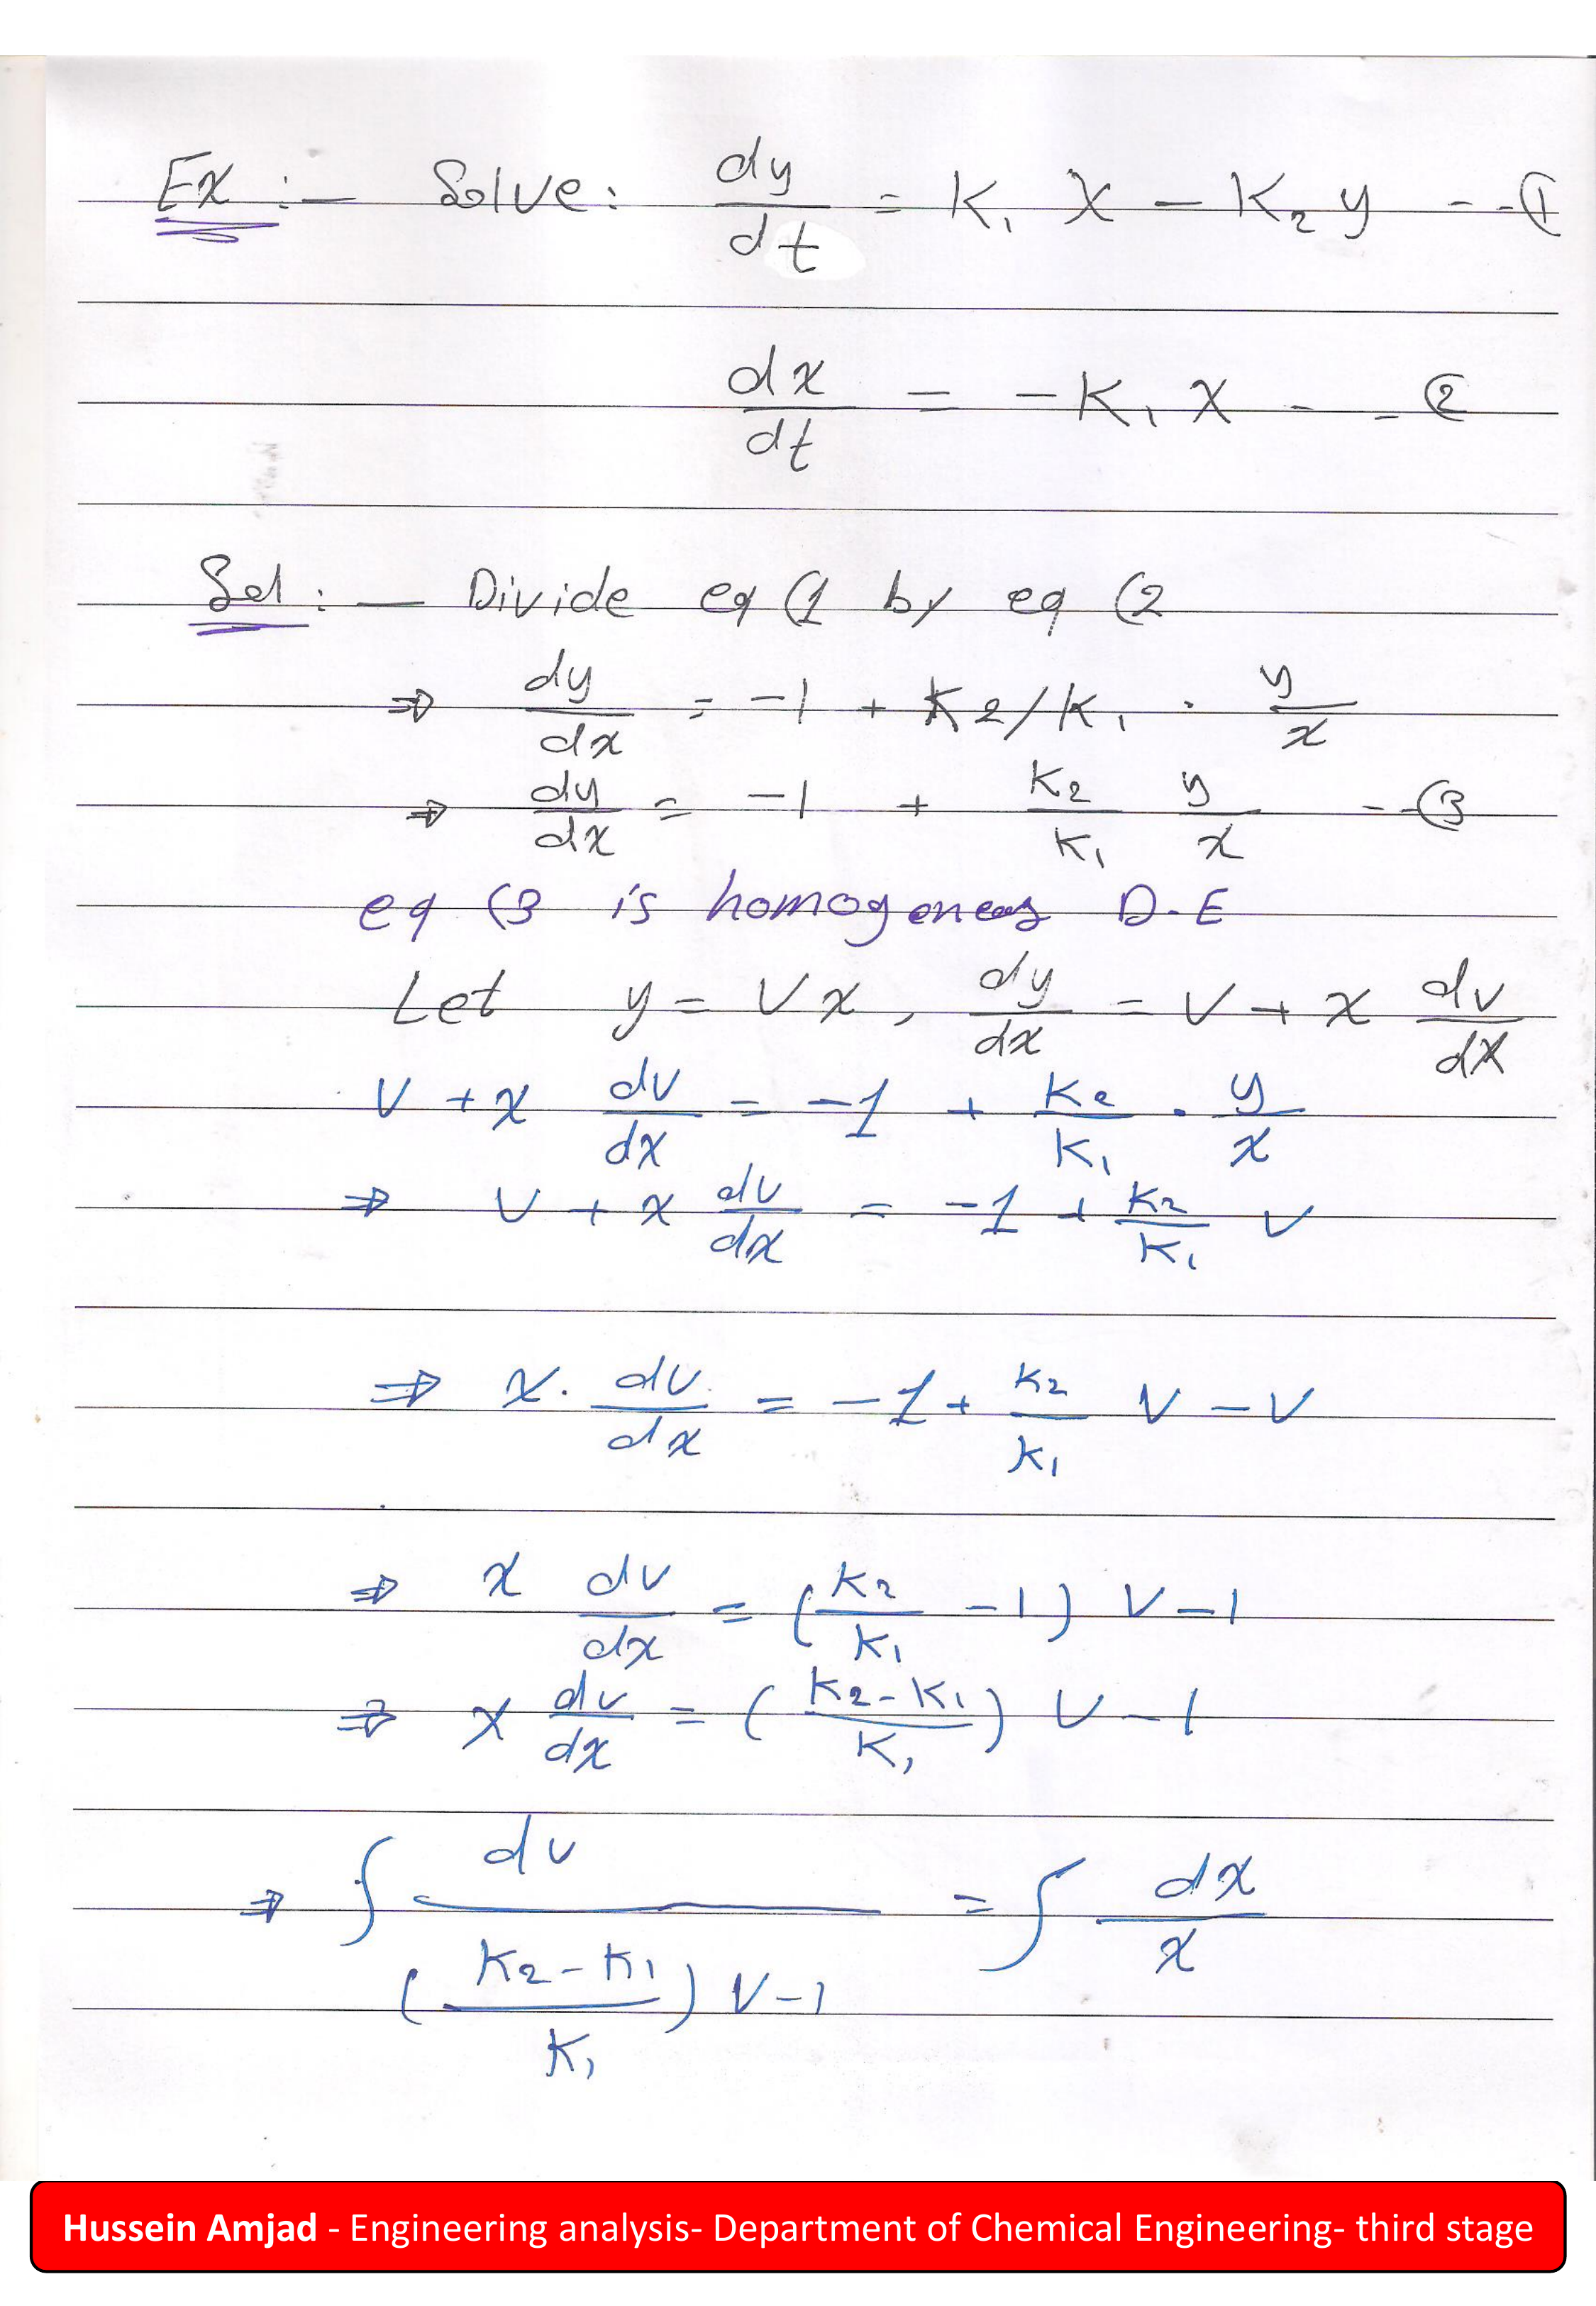 Ex :- Solve: dy/dt = K₁ X - K₂ y --(1
dx/dt = -K₁ X --(2
Sol :- Divide eq (1 by eq (2
⇒ dy/dx = -1 + K2/K₁ . y/x
⇒ dy/dx = -1 + K₂/K₁ y/x --(3
eq (3 is homogeneous D.E
Let y = Vx, dy/dx = V + x dv/dx
V + x dv/dx = -1 + K₂/K₁ . y/x
⇒ V + x dv/dx = -1 + K₂/K₁ V
⇒ x . dv/dx = -1 + K₂/K₁ V - V
⇒ x dv/dx = (K₂/K₁ - 1) V - 1
⇒ x dv/dx = (K₂-K₁/K₁) V - 1
⇒ ∫ dv/((K₂-K₁/K₁) V-1) = ∫ dx/x
Hussein Amjad - Engineering analysis- Department of Chemical Engineering- third stage